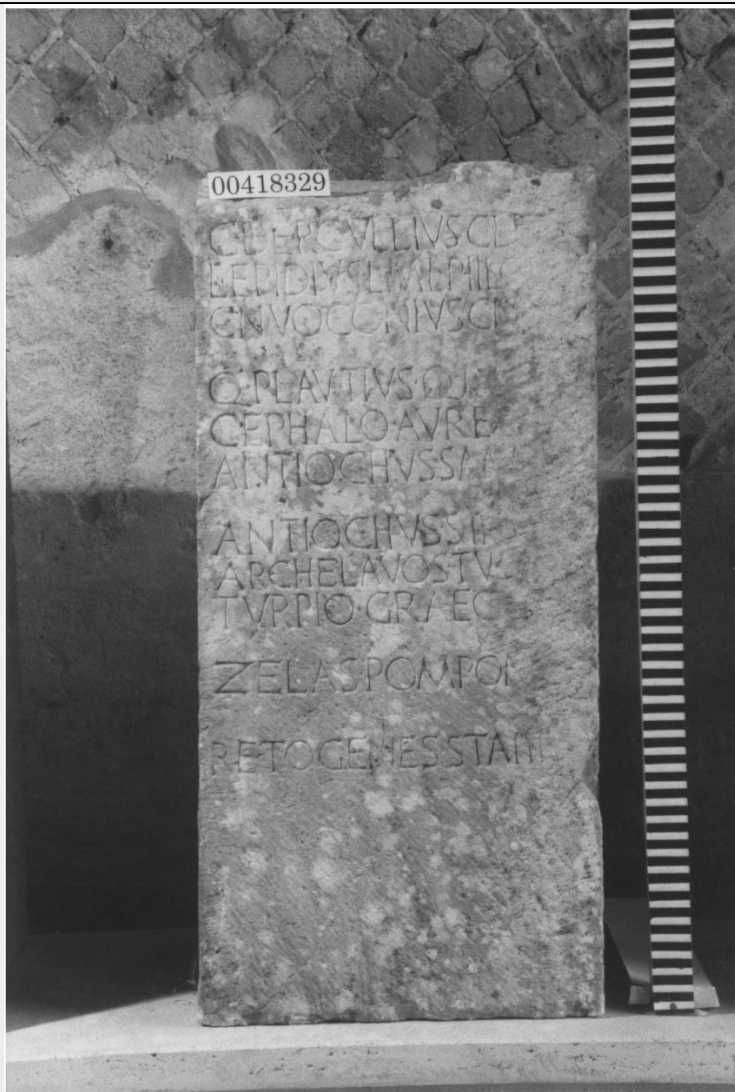 00418329
C TERCVLLIVS CL
L EPIDIVS L F ALPHE
CN VOCONIVS CN
Q PLAVTIVS QV
CEPHALO AVRE
ANTIOCHVS SA
ANTIOCHVS S
ARCHELAVOS TV
TVRPIO GRAEC
ZELAS POMPON
RETOGENES STATI